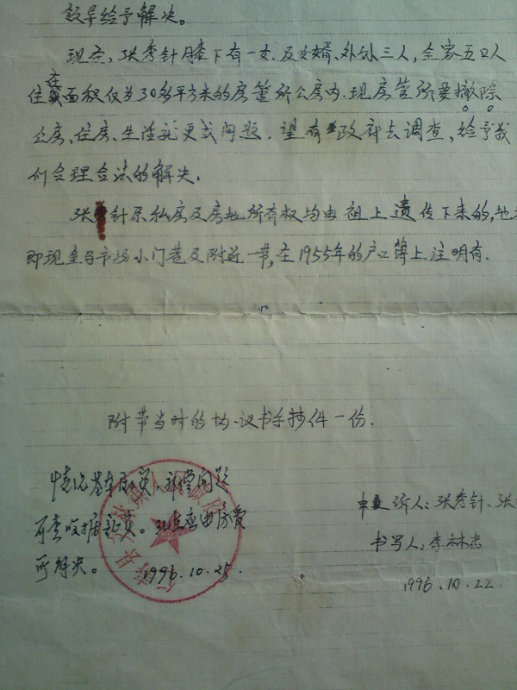 给予解决。
现在,张秀针膝下有一女及女婿、外孙三人,全家五口人
住在面积仅为30多平方米的房管所公房内.现房管所要撤除
公房,住房、生活就更成问题,望有政府去调查,给予我
们合理合法的解决。
张针原私房及房地所有权均由祖上遗传下来的,地
即现在马市场小门巷及附近一带,在1955年的户口簿上注明有.
附带当时的协议书手抄件一份.
情况
问题
所解决。 1996.10.25.
申诉人:张秀针、张
书写人:李林忠
1996.10.22.